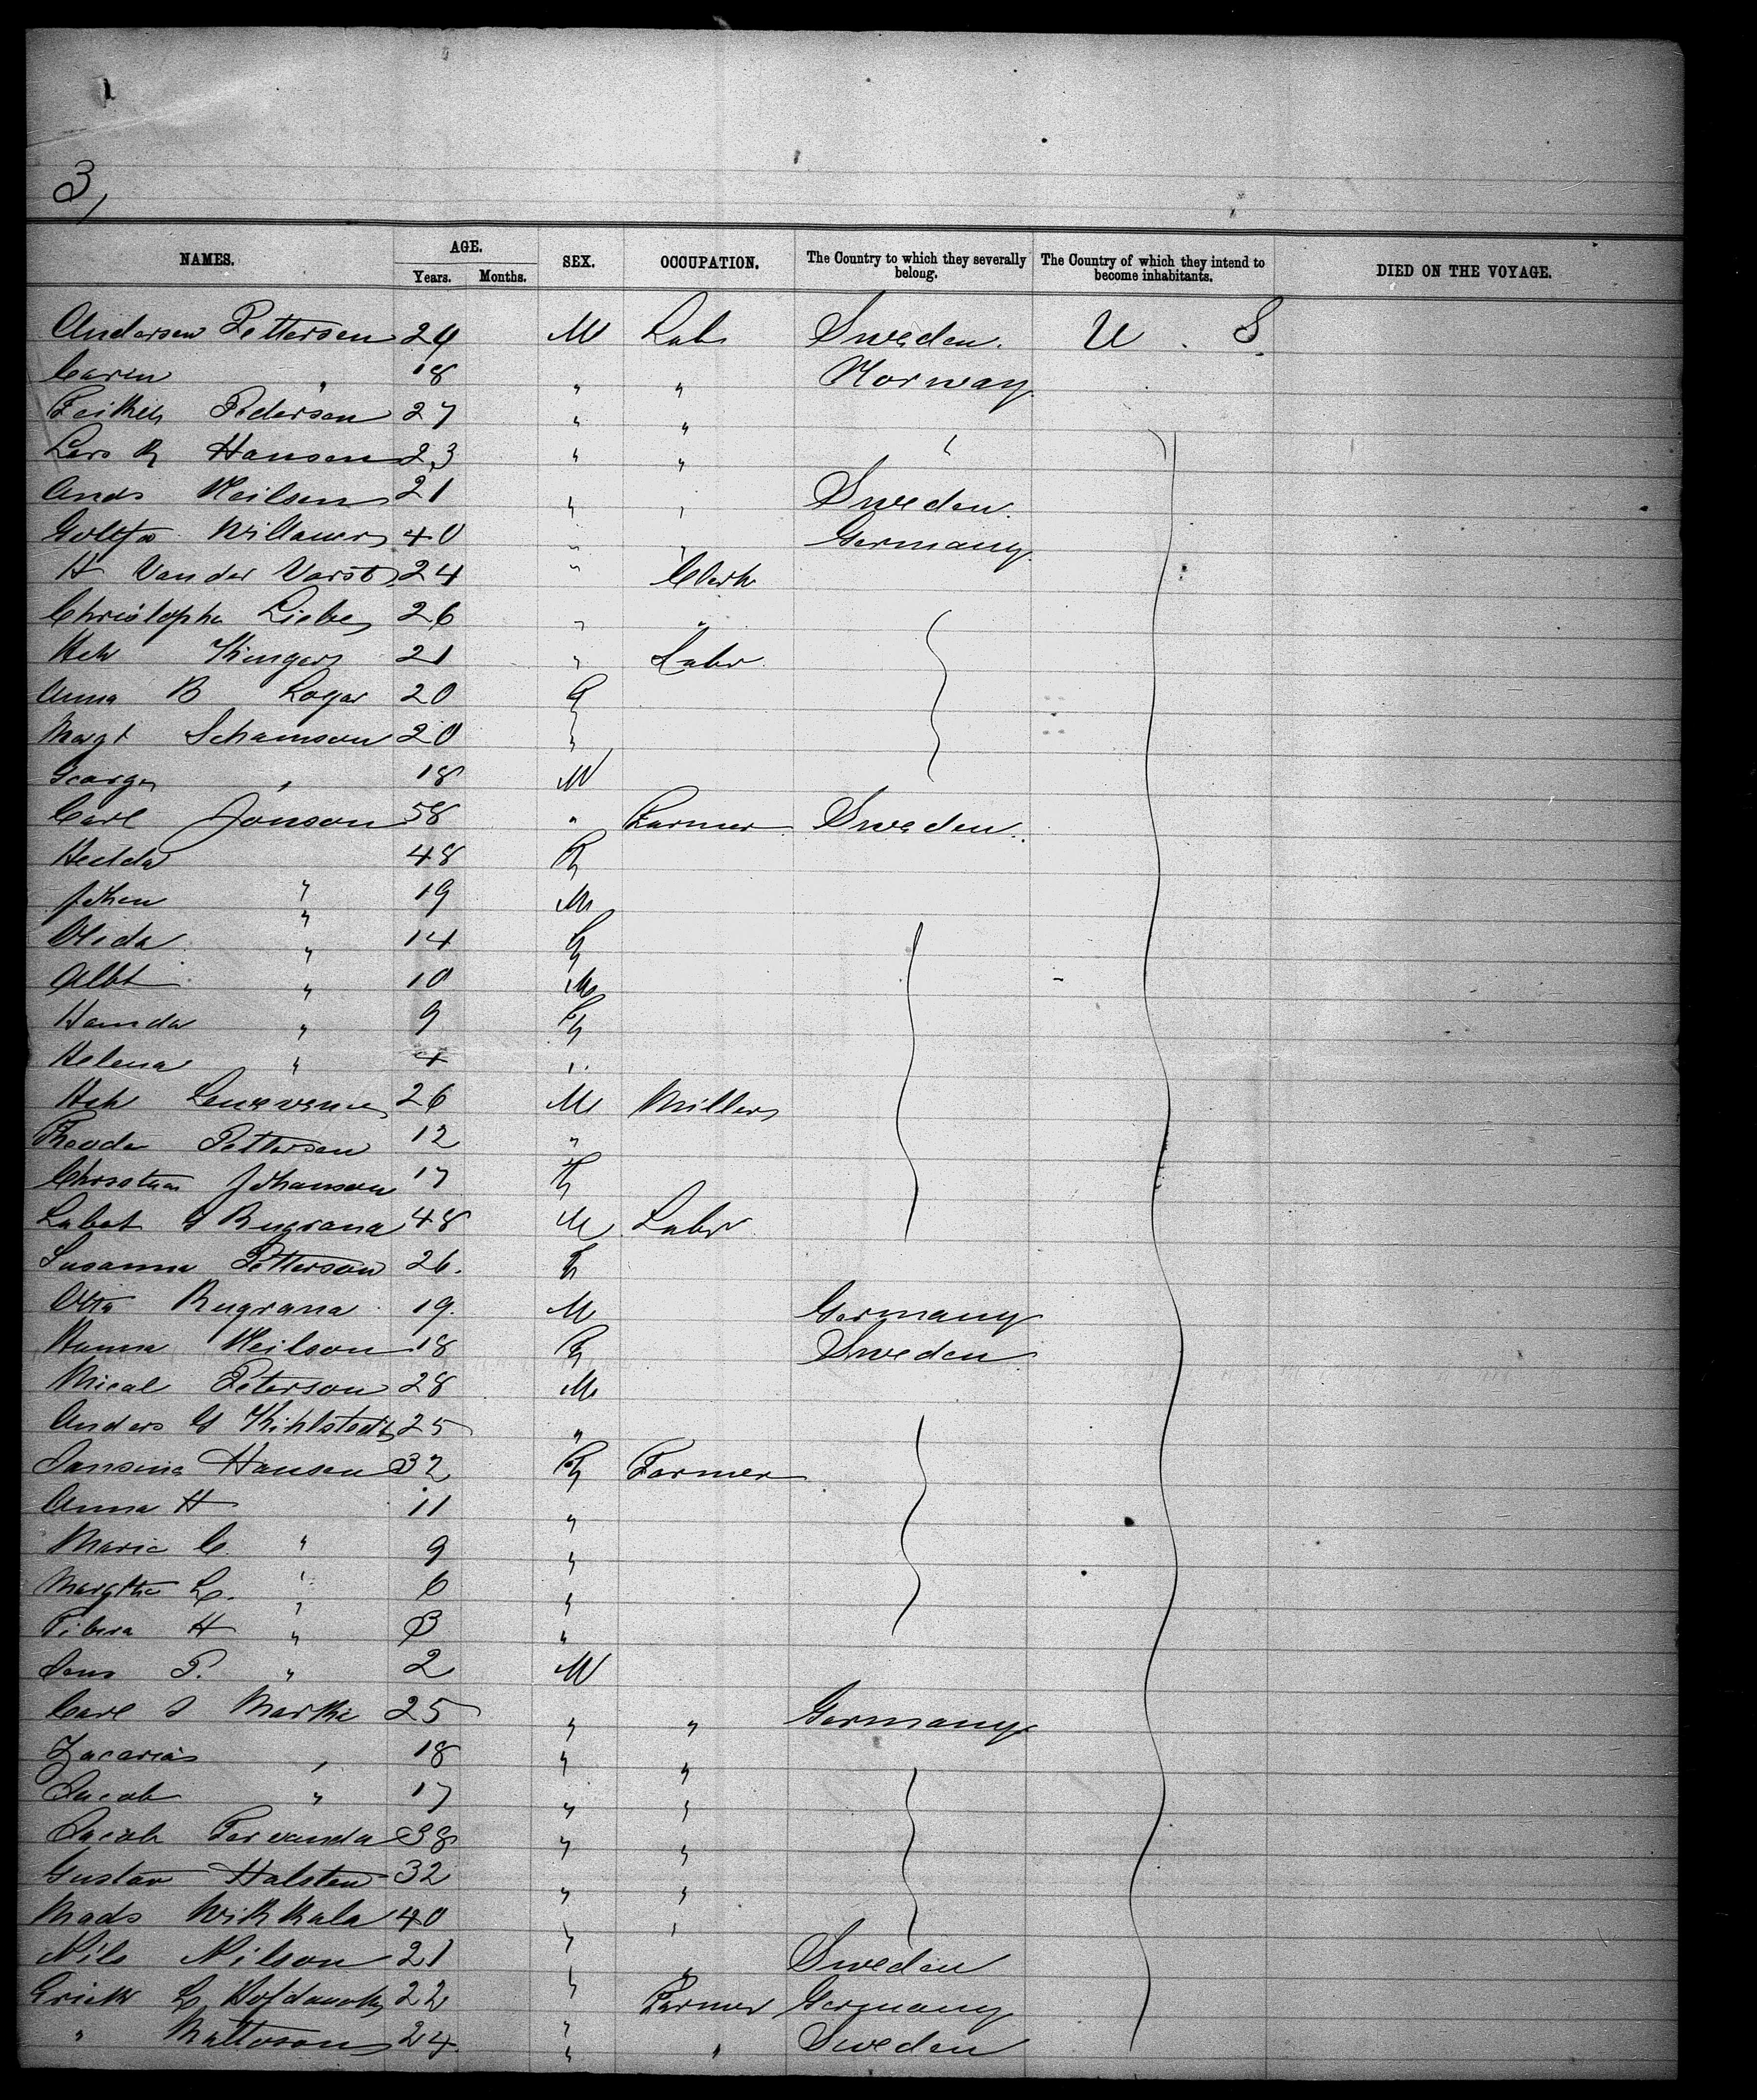 3,
NAMES. AGE. Years. Months. SEX. OCCUPATION. The Country to which they severally belong. The Country of which they intend to become inhabitants. DIED ON THE VOYAGE.
Andersen Pettersen 24 M Lab Sweden. U . S.
Caren " 18 " " Norway
Pedersen 27 " "
Lars R Hansen 23 " " "
Ands Neilsen 21 " " Sweden.
40 " " Germany
H Van der Vorst 24 " Clerk
Christopha Liebe 26 " "
Hch 21 " Labr
Anna B Logar 20 F
Margt Schamson 20 "
George " 18 M
Carl Jonson 58 " Farmer Sweden.
Hedda " 48 F
Johen " 19 M
Olida " 14 F
Albt " 10 M
Hamda " 9 F
Helena " 4 "
Hch 26 M Miller
Theodor Pettersen 12 "
Christina Johanson 17 F
48 M Labr
Susanna Petterson 26. F
Otto Rugrana 19. M Germany
Hanna Neilson 18 F Sweden
Mical Peterson 28 M
Anders G Kihlstedt 25 "
Hansen 32 F Farmer
Anna H " 11 "
Marie C. " 9 "
Margtha L. " 6 "
H " 3 "
Jens P. " 2 M
Carl J 25 " " Germany
Zacarias " 18 " "
Jacob " 17 " "
Jacob 38 " "
Gustav Halsten 32 " "
Mads Wikkala 40 " "
Nils Nilson 21 " " Sweden
Erick 22 " Farmer Germany
" Mattoson 24 " " Sweden